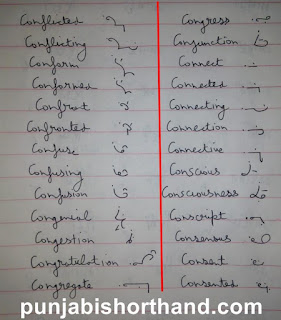 Conflicted
Conflicting
Conform
Conformed
Confront
Confronted
Confuse
Confusing
Confusion
Congenial
Congestion
Congratulation
Congregate
Congress
Conjunction
Connect
Connected
Connecting
Connection
Connective
Conscious
Consciousness
Conscript
Consensus
Consent
Consented
punjabishorthand.com